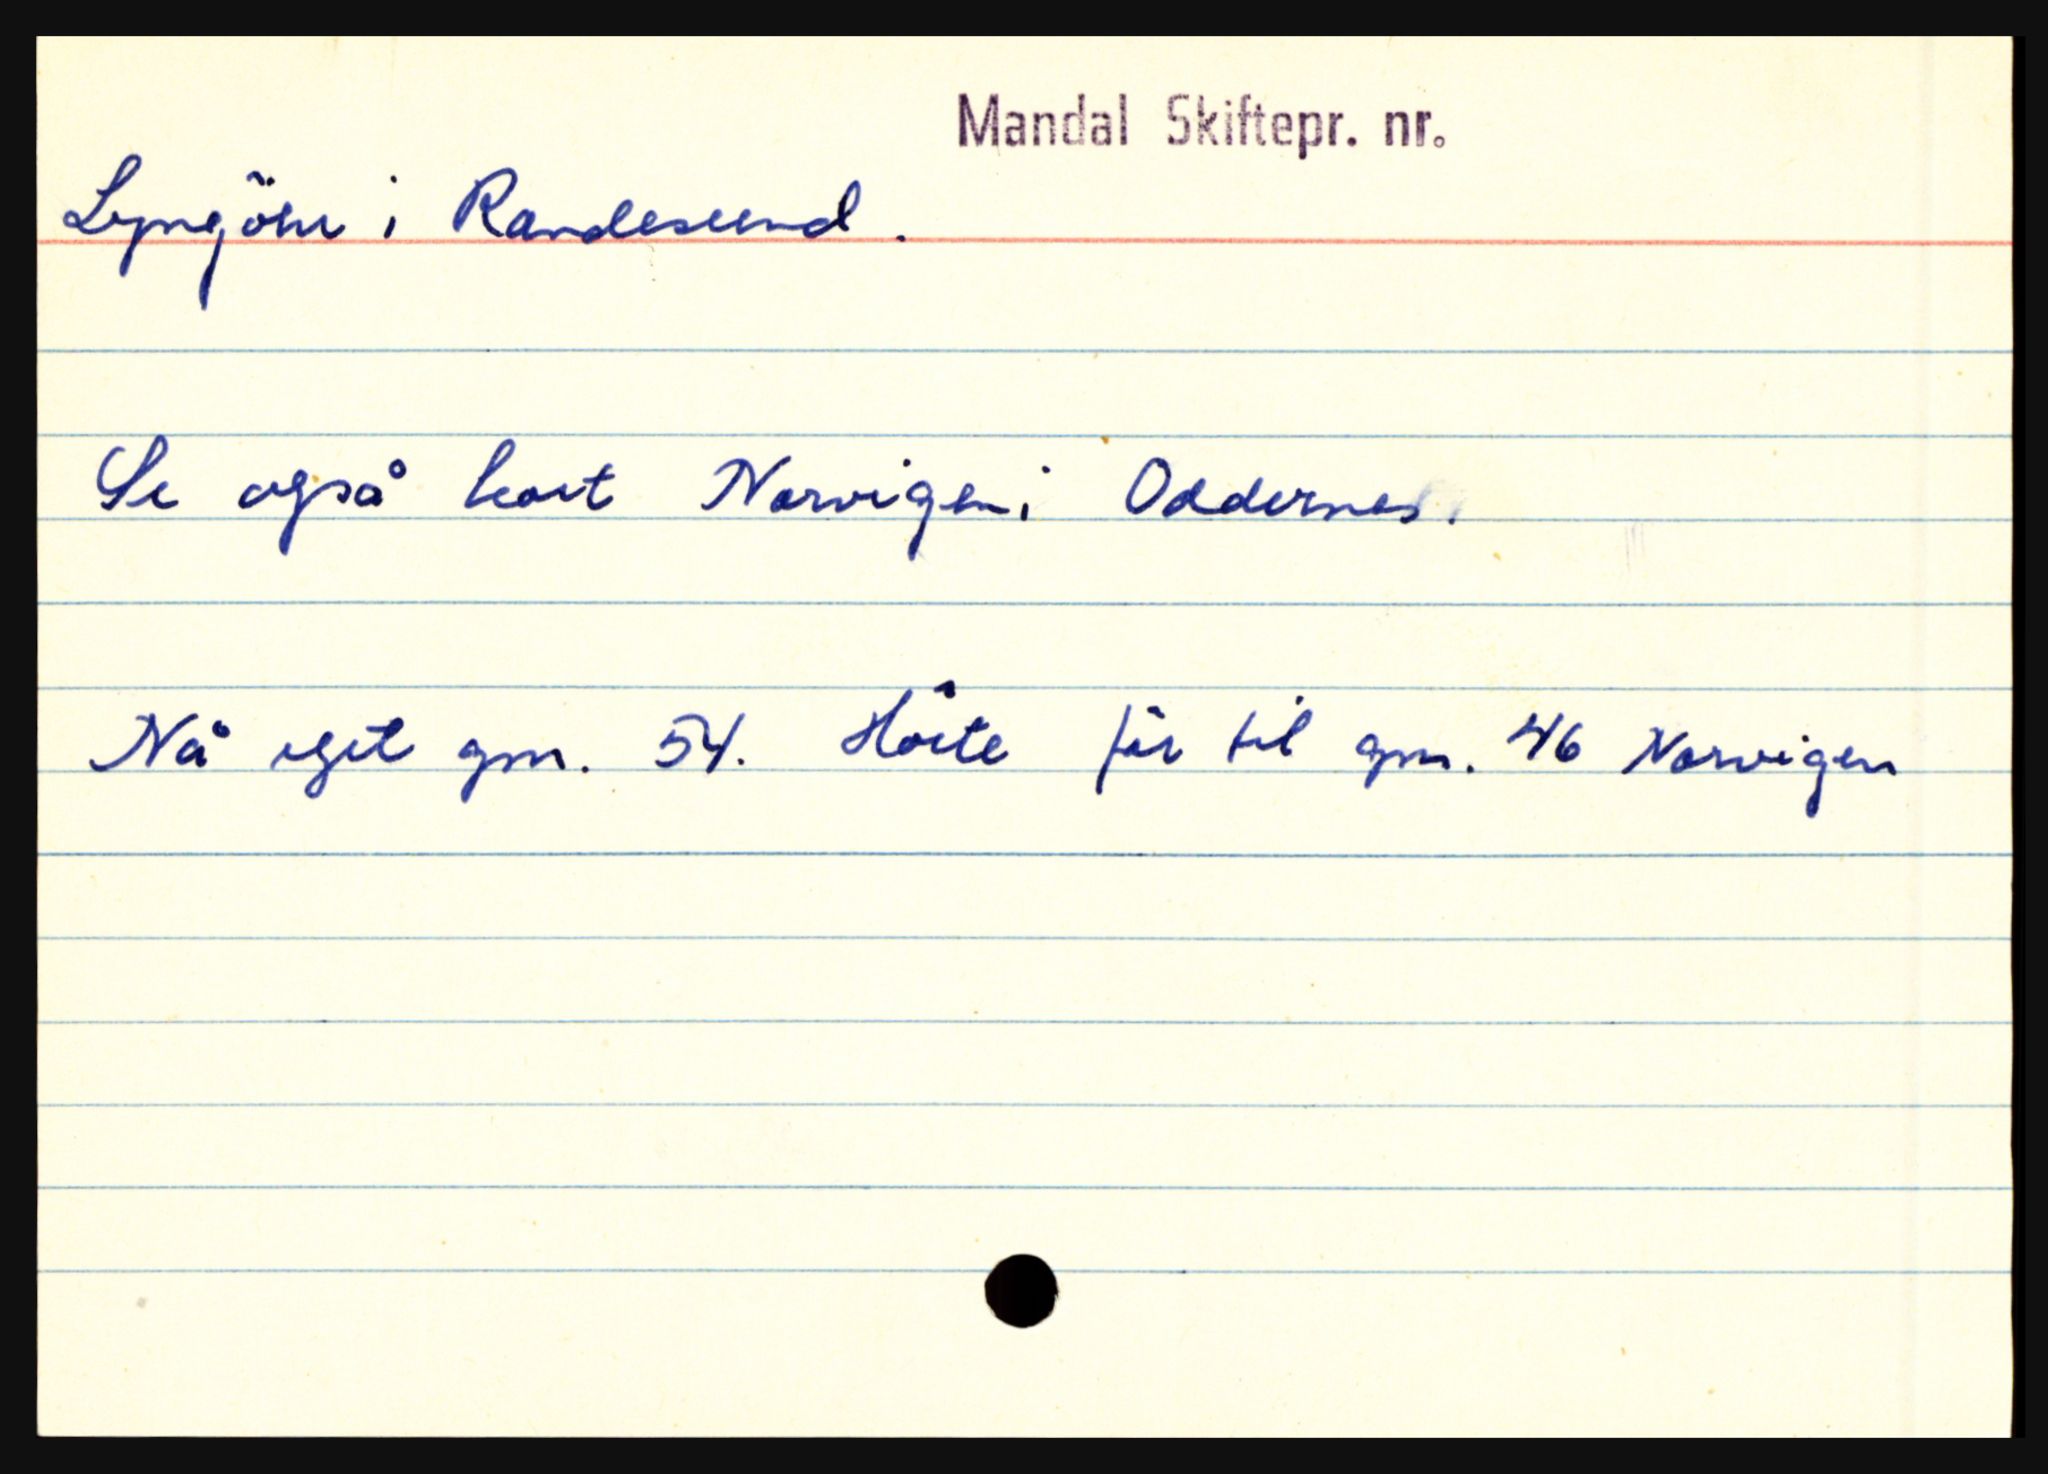 Mandal Skiftepr. nr.
Lyngöen i Randesund.
Se også kort Narvigen i Oddernes.
Nå eget gnr. 54. Hörte för til gnr. 46 Narvigen